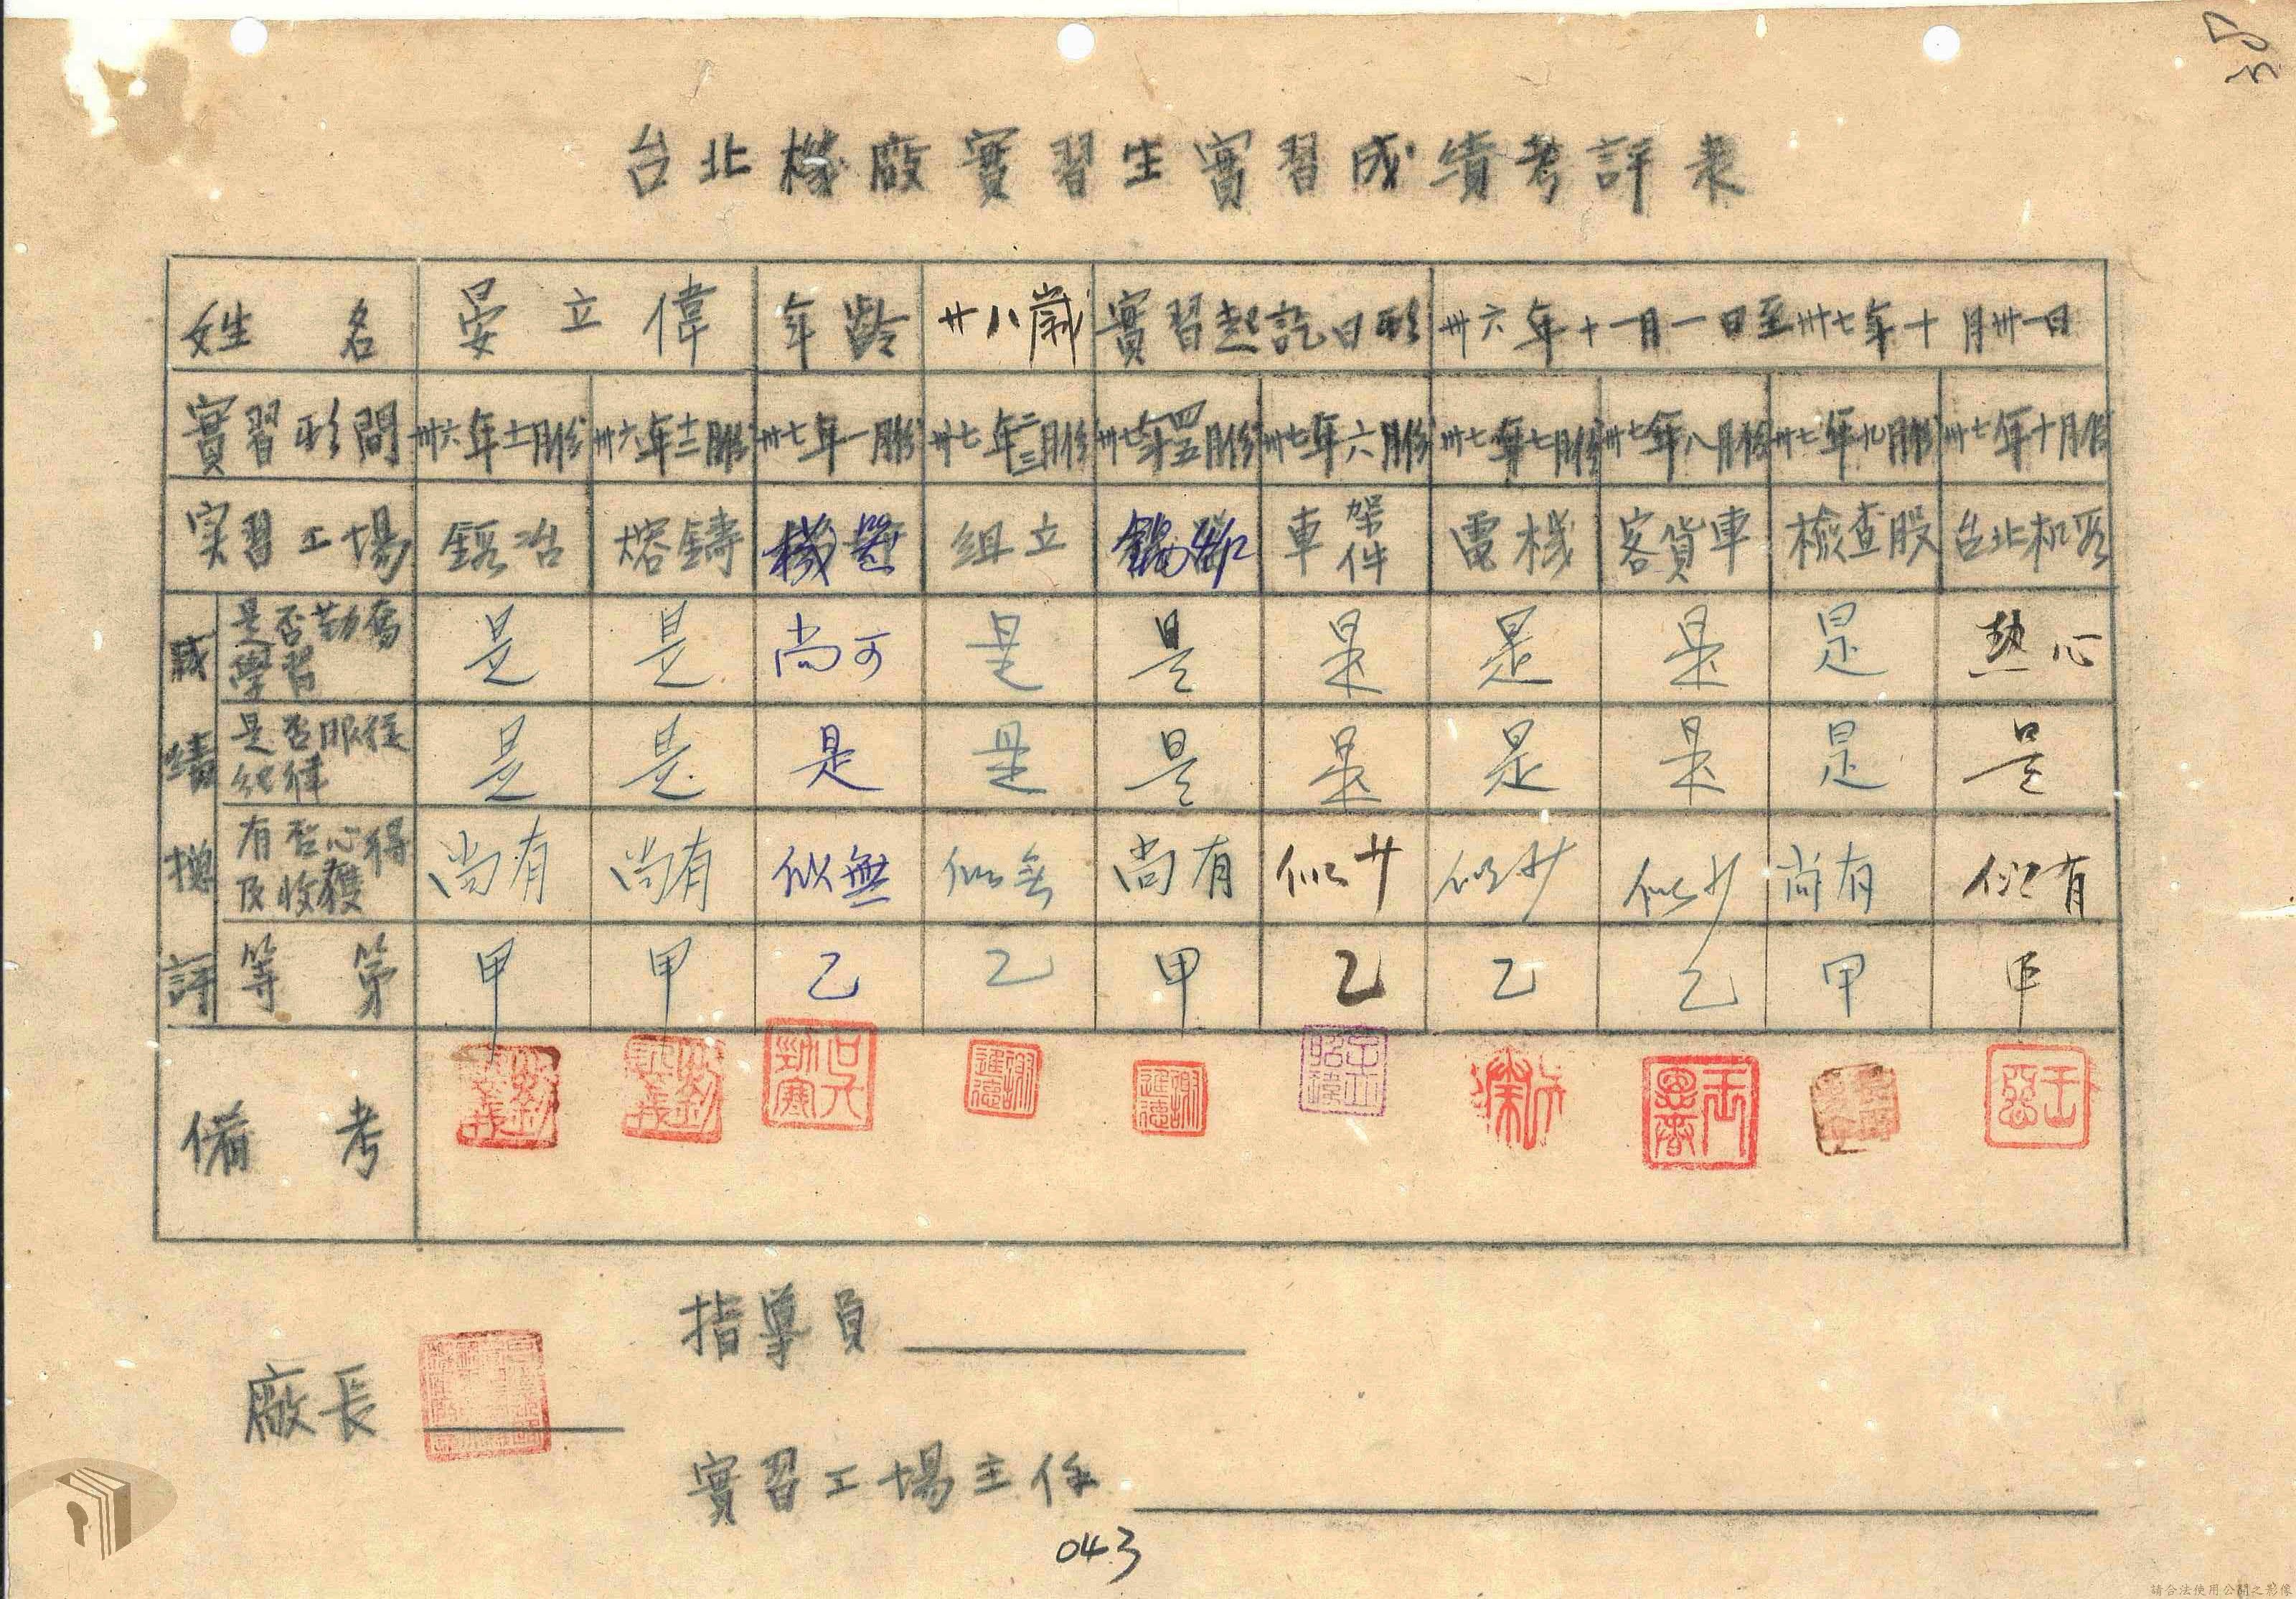 台北機廠實習生實習成績考評表
姓名 晏立偉 年齡 廿八歲 實習起訖日期 卅六年十一月一日至卅七年十月卅一日
實習時間 卅六年十一月份 卅六年十二月份 卅七年一月份 卅七年二三月份 卅七年四五月份 卅七年六月份 卅七年七月份 卅七年八月份 卅七年九月份 卅七年十月份
实習工場 鍛冶 熔鑄 機器 組立 鍋爐 車架件 電機 客貨車 檢查股 台北机段
成績總評
是否勤奮學習 是 是 尚可 是 是 是 是 是 是 熱心
是否服從紀律 是 是 是 是 是 是 是 是 是 是
有否心得及收穫 尚有 尚有 似無 似無 尚有 似少 似少 似少 尚有 似有
等第 甲 甲 乙 乙 甲 乙 乙 乙 甲 甲
備考
謝進德 謝進德
指導員
廠長
實習工場主任
043
請合法使用公開之影像